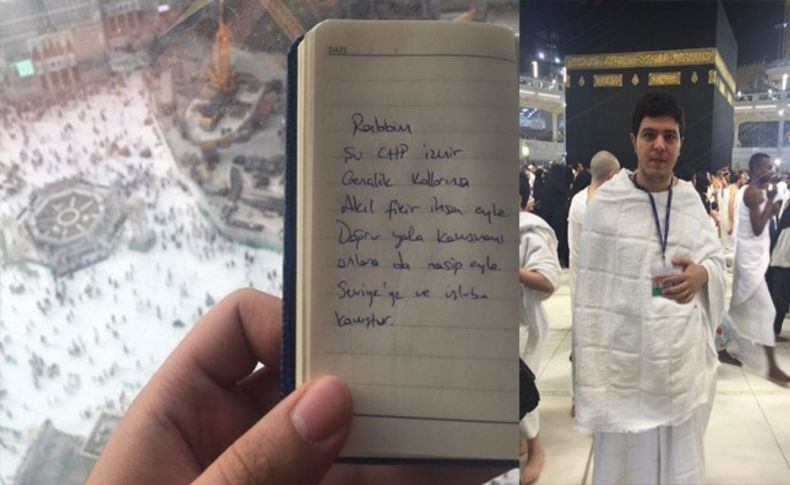 DATE / /
Rabbim
Şu CHP İzmir
Gençlik Kollarına
Akıl fikir ihsan eyle
Doğru yola kavuşmayı
onlara da nasip eyle
Seviye'ye ve üsluba
kavuştur.